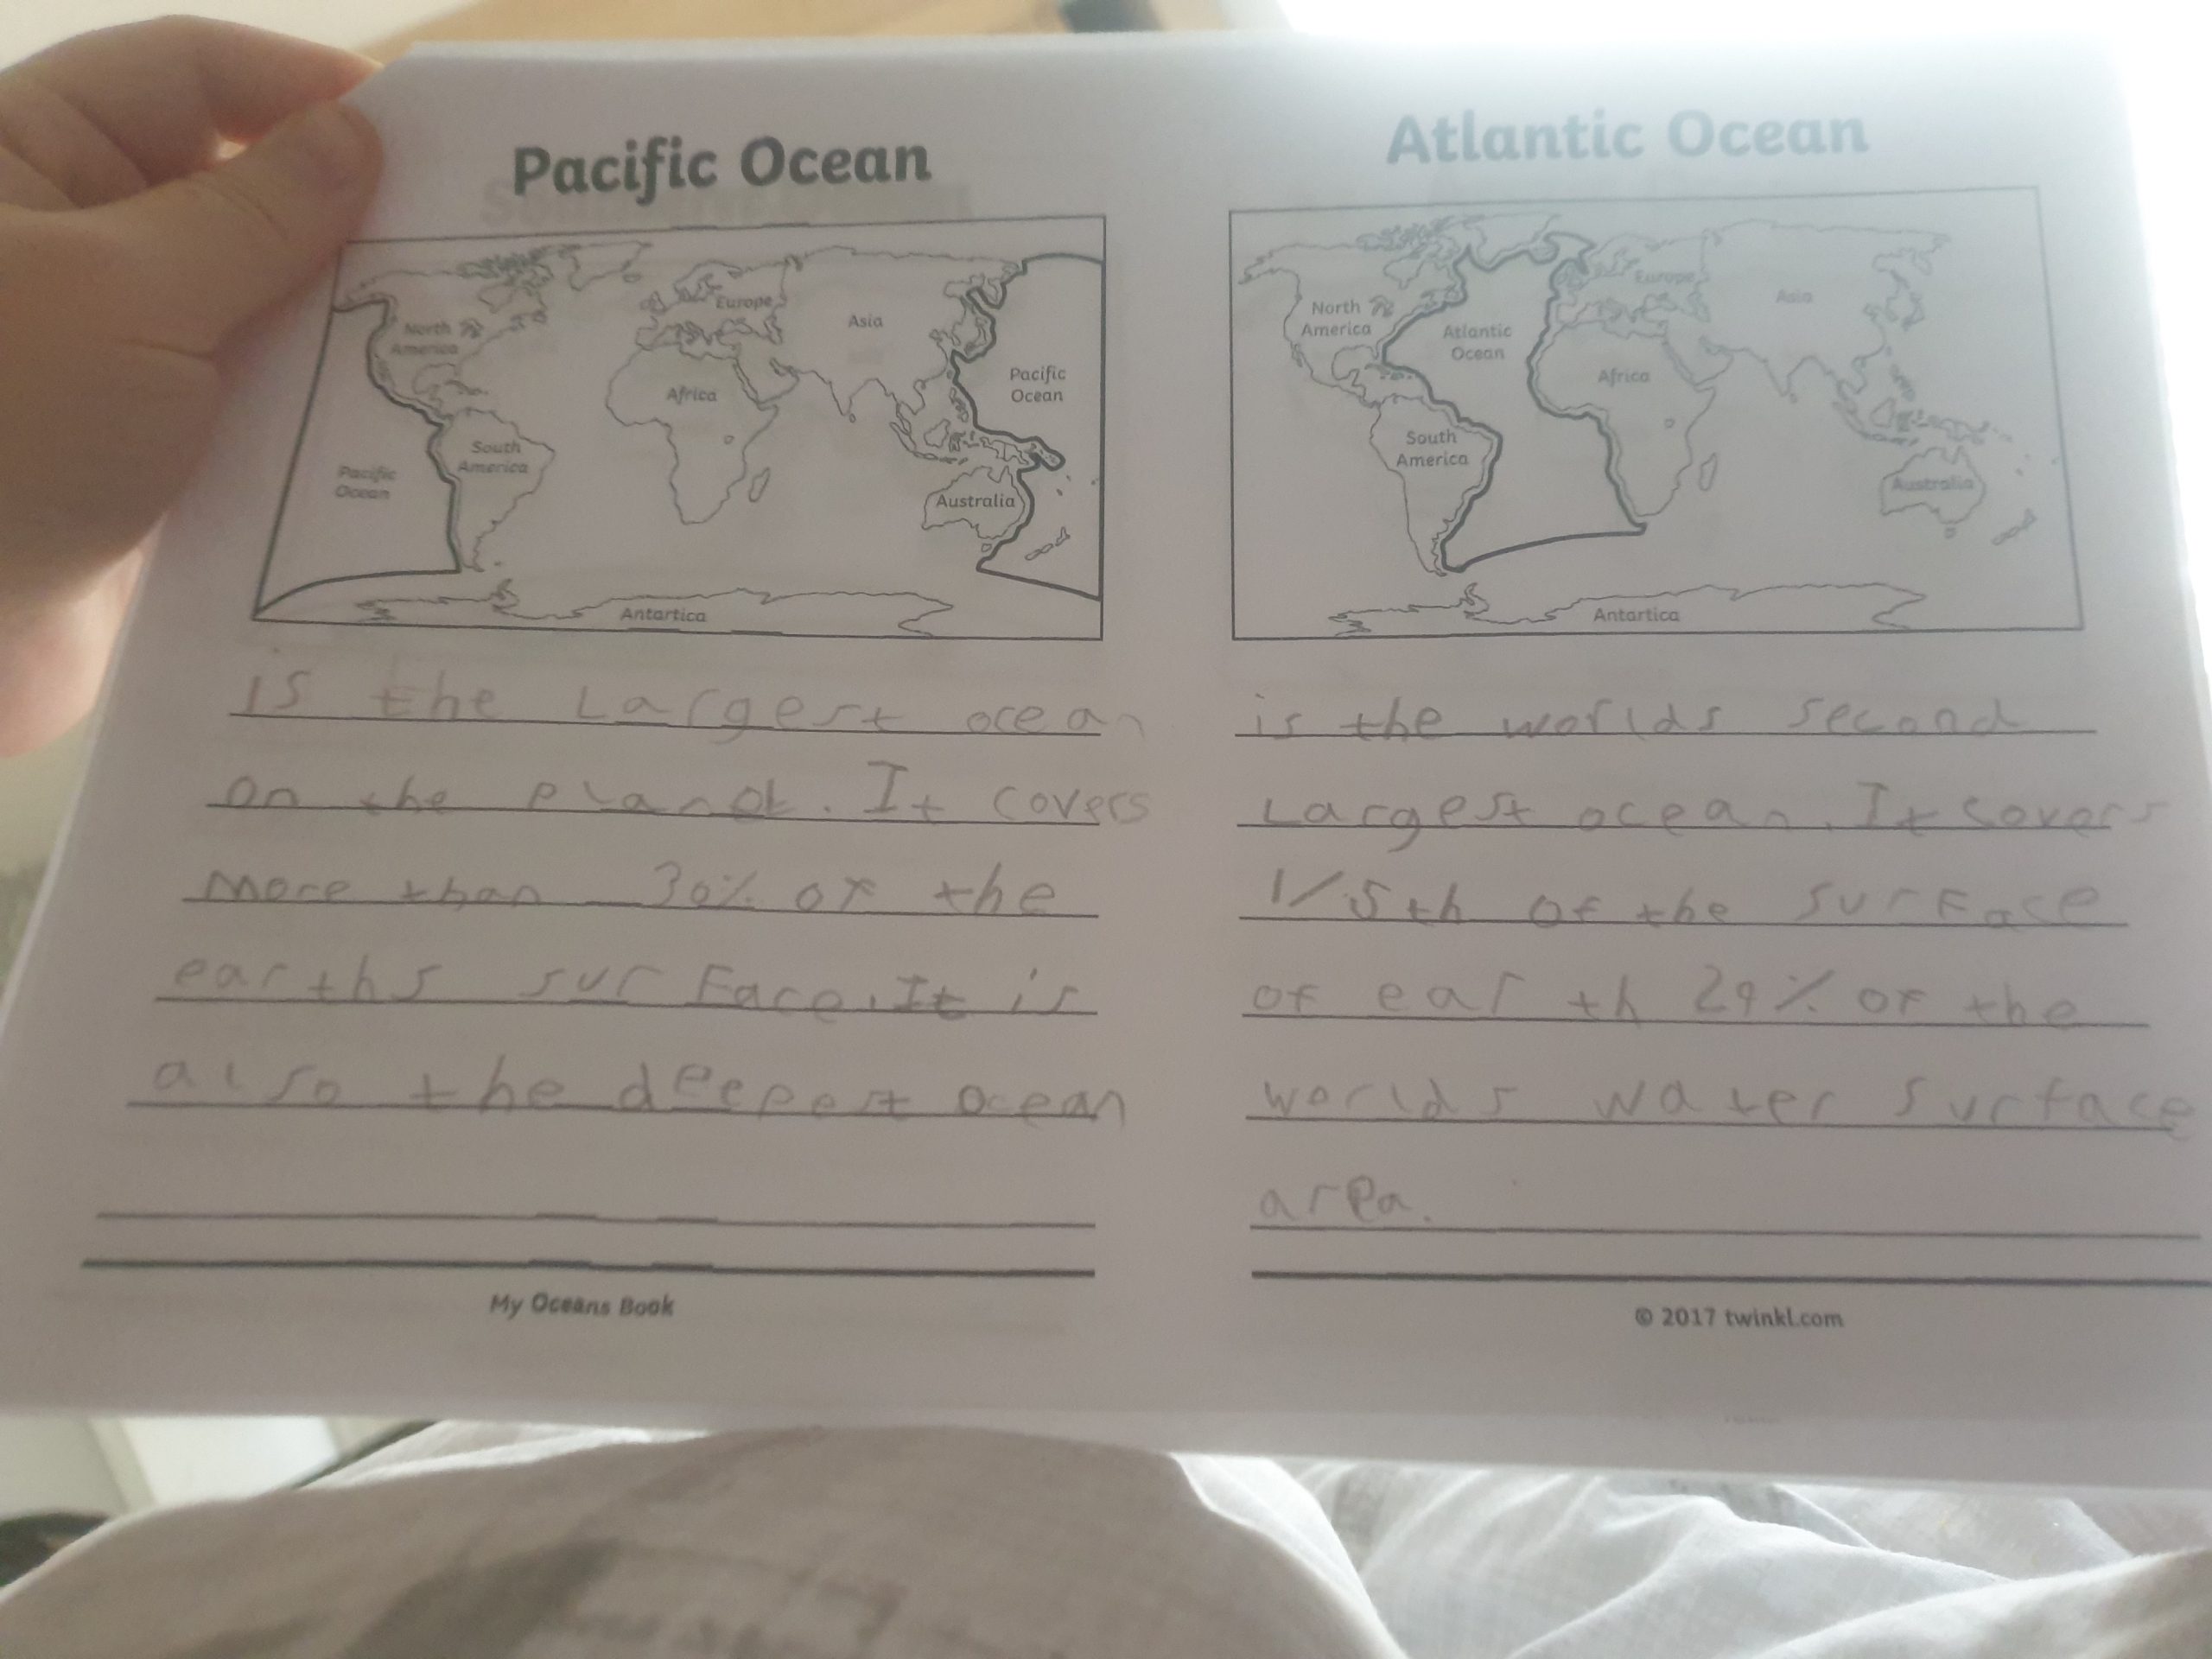 Pacific Ocean
North
America
Europe
Asia
Africa
Pacific
Ocean
South
America
Pacific
Ocean
Australia
Antartica
is the Largest ocean
on the planet. It covers
more than 30% of the
earths surface. It is
also the deepest ocean
My Oceans Book
Atlantic Ocean
North
America
Atlantic
Ocean
Europe
Asia
Africa
South
America
Australia
Antartica
is the worlds second
Largest ocean. It covers
1/5th of the surface
of earth 29% of the
worlds water surface
area.
© 2017 twinkl.com